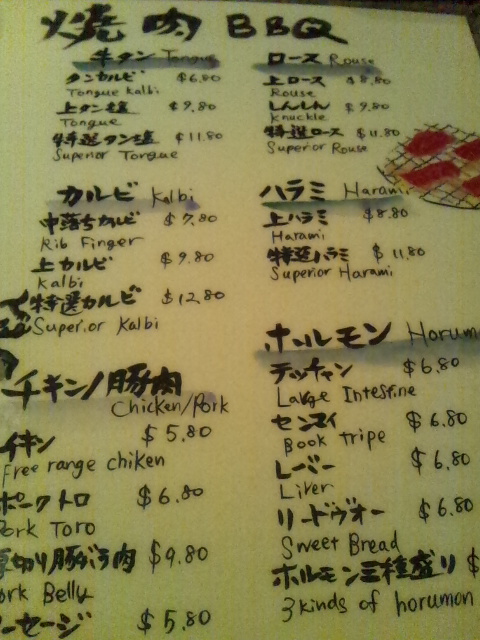 焼肉 BBQ
牛タン Tongue
タンカルビ $6.80
Tongue Kalbi
上タン塩 $9.80
Tongue
特選タン塩 $11.80
Superior Tongue
カルビ Kalbi
中落ちカルビ $7.80
Rib Finger
上カルビ $9.80
Kalbi
特選カルビ $12.80
Superior Kalbi
チキン/豚肉
Chicken/Pork
キン $5.80
Free range chiken
ポークトロ $6.80
Pork Toro
切り豚バラ肉 $9.80
Pork Belly
ーセージ $5.80
ロース Rouse
上ロース $8.80
Rouse
しんしん $9.80
Knuckle
特選ロース $11.80
Superior Rouse
ハラミ Harami
上ハラミ $8.80
Harami
特選ハラミ $11.80
Superior Harami
ホルモン Horum
テッチャン $6.80
Large Intestine
センマイ $6.80
Book tripe
レバー $6.80
Liver
リードヴォー $6.80
Sweet Bread
ホルモン三種盛り $
3 kinds of horumon